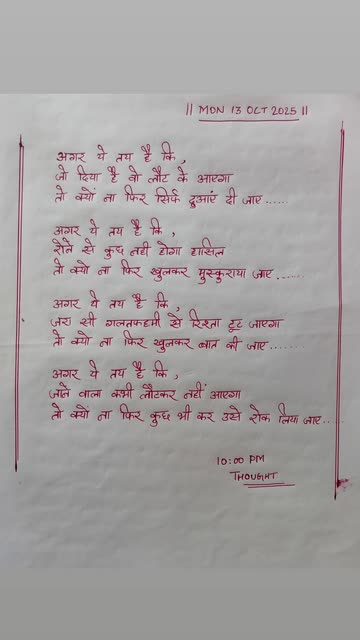 || MON 13 OCT 2025 ||
अगर ये तय है कि,
जो दिया है वो लौट के आएगा
तो क्यों ना फिर सिर्फ दुआएं दी जाए......
अगर ये तय है कि,
रोने से कुछ नही होगा हासिल
तो क्यों ना फिर खुलकर मुस्कुराया जाए......
अगर ये तय है कि,
जरा सी गलतफहमी से रिश्ता टूट जाएगा
तो क्यों ना फिर खुलकर बात की जाए........
अगर ये तय है कि,
जाने वाला कभी लौटकर नहीं आएगा
तो क्यों ना फिर कुछ भी कर उसे रोक लिया जाए.....
10:00 PM
THOUGHT